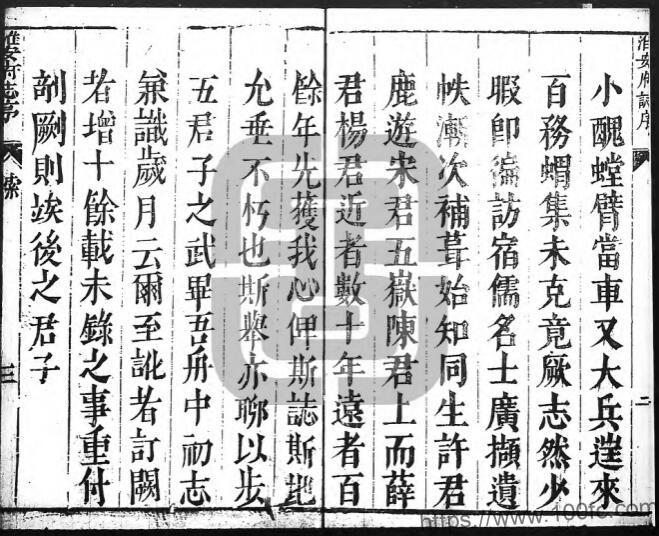 淮安府誌序
二
小醜螳臂當車又大兵遝來
百務蝟集未克竟厥志然少
暇卽徧訪宿儒名士廣擷遺
帙漸次補葺始知同生許君
鹿遊宋君五嶽陳君上而薛
君楊君近者數十年遠者百
餘年先獲我心俾斯誌斯地
允垂不朽也斯舉亦聊以步
五君子之武畢吾舟中初志
兼識歲月云爾至訛者訂闕
者增十餘載未錄之事重付
剞劂則竢後之君子
淮安府志序
三
https://www.100fc.com